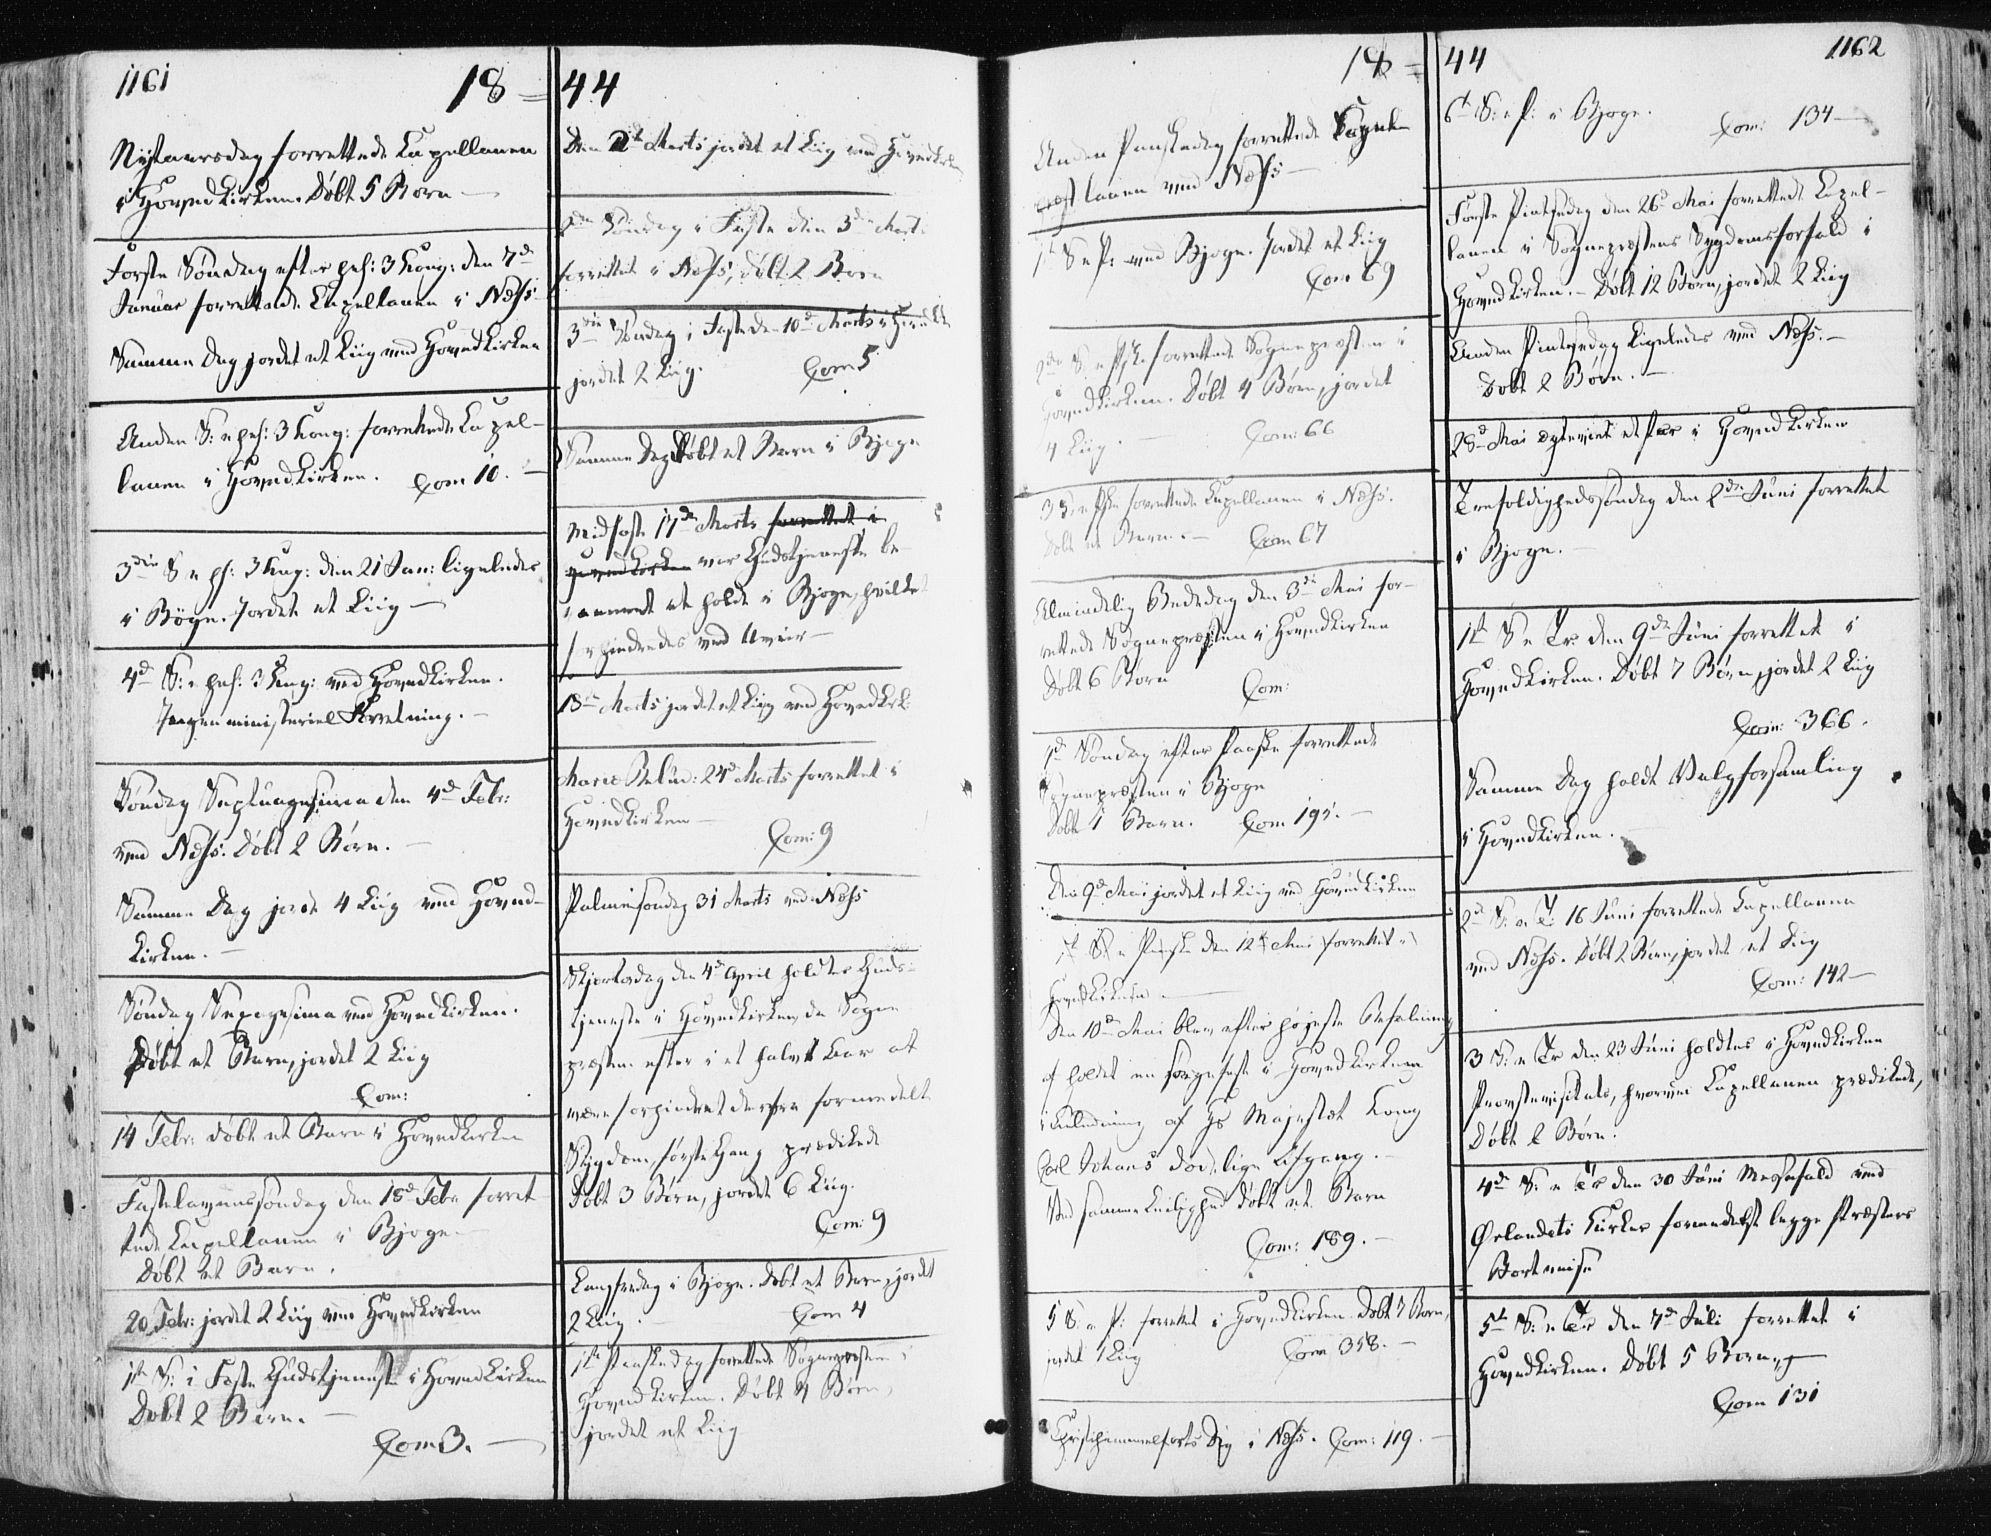 1161
18 = 44
Nytaarsdag forrettede Capellanen
i Hovedkirken. Døbt 5 Børn —
Første Søndag efter hel: 3 Kong: den 7de
Januar forrettede Capellanen i Næss
Samme Dag jordet et Liig ved Hovedkirken
Anden S: e hel: 3 Kong: forrettede Capel-
lanen i Hovedkirken. Com 10. —
3die S e h: 3 Kong: den 21 Jan: ligeledes
i Bøgn. Jordet et Liig —
4d S: e hel: 3 Kong: ved Hovedkirken.
Ingen ministeriel Forretning. —
Søndag Septuagesima den 4d Febr:
ved Næss. Døbt 2 Børn. —
Samme Dag jordet 4 Liig ved Hoved-
kirken. —
Søndag Sexagesima ved Hovedkirken.
Døbt et Barn, jordet 2 Liig
Com:
14 Febr: døbt et Barn i Hovedkirken
Fastelavnssøndag den 18d Febr forret
tede Capellanen i Bjogn —
Døbt et Barn.
20 Febr: jordet 2 Liig ved Hovedkirken
1ste S: i Faste Gudstjeneste i Hovedkirken
Døbt 2 Børn. —
Com 3. —
Den 2d Marts jordet et Liig ved Hovedkirk
2den Søndag i Faste den 3die Marts
forrettet i Næss, døbt 2 Børn
3die Søndag i Faste den 10d Marts i Hovedk
jordet 2 Liig. Com 5
Samme Dag døbt et Barn i Bjogn
Midfaste 17de Marts forrettet i
Hovedkirken var Gudstjeneste be-
rammet at holdes i Bjogn, hvilket
forhindredes ved Uveir —
Marts jordet et Liig ved Hovedkk:
Mariæ Bebud: 24d Marts forrettet i
Hovedkirken —
Com: 9
Palmesøndag 31 Marts ved Næss
Skjertorsdag den 4d April holdtes Guds-
tjeneste i Hovedkirken, da Sogne
præsten efter i et halvt Aar at
være forhindret derfra formedelst
Sygdom, første Gang prædikede
Døbt 3 Børn, jordet 6 Liig.
Com: 9
Langfredag i Bjogn. Døbt et Barn, jordet
2 Liig. — Com 4
1ste Paaskedag forrettede Sognepræsten i
Hovedkirken. Døbt 4 Børn,
jordet et Liig
18 = 44
1162
Anden Paaskedag forrettede Capel-
lanen ved Næss —
1st S e P: ved Bjogn. Jordet et Liig
Com 69
2den S. e Pske forrettede Sognepræsten i
Hovedkirken. Døbt 4 Børn, jordet
4 Liig. — Com: 66
3 S: e Pske forrettede Capellanen i Næss.
Døbt et Barn. — Com 67
Almindelig Bededag den 3die Mai for-
rettede Sognepræsten i Hovedkirken
Døbt 6 Børn Com:
4d Søndag efter Paaske forrettede
Sognepræsten i Bjogn
Døbt 1 Barn. Com 195. —
Den 9d Mai jordet et Liig ved Hovedkirken
S: e Paaske den 12te Mai forrettet i
Hovedkirken. —
Den 10de Mai blev efter højeste Befaling
afholdet en Sørgefest i Hovedkirken
i Anledning af Hs Majestæt Kong
Carl Johans dødelige Afgang. —
Ved samme Leilighed døbt et Barn
Com: 189. —
5 S. e P: forrettet i Hovedkirken. Døbt 7 Børn,
jordet 1 Liig Com 358. —
Christihimmelfarts Dag i Næss. Com: 119. —
6t S: e P: i Bjogn. Com: 134 —
Første Pintsedag den 26d Mai forrettede Capel-
lanen i Sognepræstens Sygdomsforfald i
Hovedkirken. — Døbt 12 Børn, jordet 2 Liig
Anden Pintsedag ligeledes ved Næss. —
Døbt 2 Børn. —
28d Mai egteviet et Par i Hovedkirken
Trefoldighedssøndag den 2den Juni forrettet
i Bjogn. —
1st S e Tr. den 9de Juni forrettet i
Hovedkirken. Døbt 7 Børn, jordet 2 Liig
Com: 366.
Samme Dag holdt Valgforsamling
i Hovedkirken.
2d S: e T: 16 Juni forrettede Capellanen
ved Næss. Døbt 2 Børn, jordet et Liig
Com: 142 —
3 S: e Tr den 23 Juni holdtes i Hovedkirken
Provstevisitats, hvorved Capellanen prædikede,
Døbt 2 Børn.
4d S: e Tr den 30 Juni Messefald ved
Ørlandets Kirker formedelst begge Præsters
Bortreise
5t S: e Tr den 7d Juli forrettet i
Hovedkirken. Døbt 5 Børn, —
Com 131